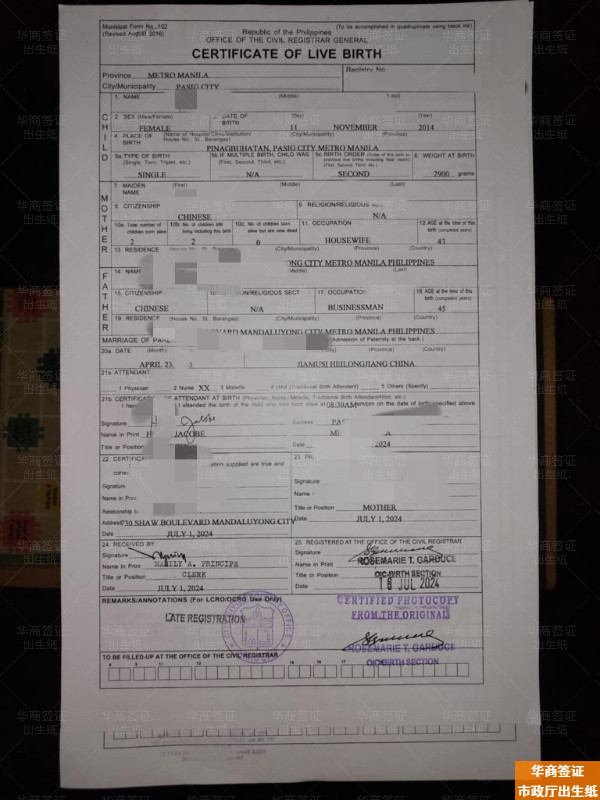 Municipal Form No. 102
(Revised August 2016)
(To be accomplished in quadruplicate using black ink)
Republic of the Philippines
OFFICE OF THE CIVIL REGISTRAR GENERAL
CERTIFICATE OF LIVE BIRTH
Province METRO MANILA
Registry No
City/Municipality PASIG CITY
CHILD
1. NAME (Middle) (Last)
2. SEX (Male/Female) DATE OF BIRTH (Day) (Year)
FEMALE 11 NOVEMBER 2014
4. PLACE OF BIRTH (Name of Hospital/Clinic/Institution/ House No., St., Barangay) (City/Municipality) (Province)
PINAGBUHATAN, PASIG CITY METRO MANILA
5a. TYPE OF BIRTH (Single, Twin, Triplet, etc.) 5b. IF MULTIPLE BIRTH, CHILD WAS (First, Second, Third, etc.) 5c. BIRTH ORDER (First, Second, Third, etc.) 6. WEIGHT AT BIRTH
SINGLE N/A SECOND 2900 grams
MOTHER
7. MAIDEN NAME (First) (Middle) (Last)
8. CITIZENSHIP 9. RELIGION/RELIGIOUS
CHINESE N/A
10a. Total number of children born alive 10b. No. of children still living including this birth 10c. No. of children born alive but are now dead 11. OCCUPATION 12. AGE at the time of this birth (completed years)
2 2 0 HOUSEWIFE 43
13. RESIDENCE (City/Municipality) (Province) (Country)
ONG CITY METRO MANILA PHILIPPINES
FATHER
14. NAME (Middle) (Last)
15. CITIZENSHIP ION/RELIGIOUS SECT 17. OCCUPATION 18. AGE at the time of this birth (completed years)
CHINESE N/A BUSINESSMAN 45
19. RESIDENCE (House No., St., Barangay) (City/Municipality) (Province) (Country)
VARD MANDALUYONG CITY METRO MANILA PHILIPPINES
MARRIAGE OF PAR Admission of Paternity at the back.)
20a. DATE (Month) (City/Municipality) (Province) (Country)
APRIL 23, JIAMUSI HEILONGJIANG CHINA
21a. ATTENDANT
1 Physician 2 Nurse XX 3 Midwife 4 Hilot (Traditional Birth Attendant) 5 Others (Specify)
21b. CERTIFIC OF ATTENDANT AT BIRTH (Physician, Nurse, Midwife, Traditional Birth Attendant/Hilot, etc.)
I attended the birth of the child who was born alive at 08:30AM am/pm on the date of birth specified above
Signature Jacobe
Name in Print H JACOBE
Title or Position
Date 2024
22. CERTIFICA
ation supplied are true and
Signature
Name in Print
Relationship to
Address 730 SHAW BOULEVARD MANDALUYONG CITY
Date JULY 1, 2024
23. PR
Signature
Name
Title or Position MOTHER
Date JULY 1, 2024
24. RECEIVED BY
Signature
Name in Print MARILY A. PRINCIPE
Title or Position CLERK
Date JULY 1, 2024
25. REGISTERED AT THE OFFICE OF THE CIVIL REGISTRAR
Signature
Name in Print ROSEMARIE T. GARDUCE
Title or Position OIC-BIRTH SECTION
Date 16 JUL 2024
REMARKS/ANNOTATIONS (For LCRO/OCRG Use Only)
LATE REGISTRATION
CERTIFIED PHOTOCOPY
FROM THE ORIGINAL
ROSEMARIE T. GARDUCE
OIC-BIRTH SECTION
TO BE FILLED-UP AT THE OFFICE OF THE CIVIL REGISTRAR
华商签证
出生纸
华商签证
市政厅出生纸